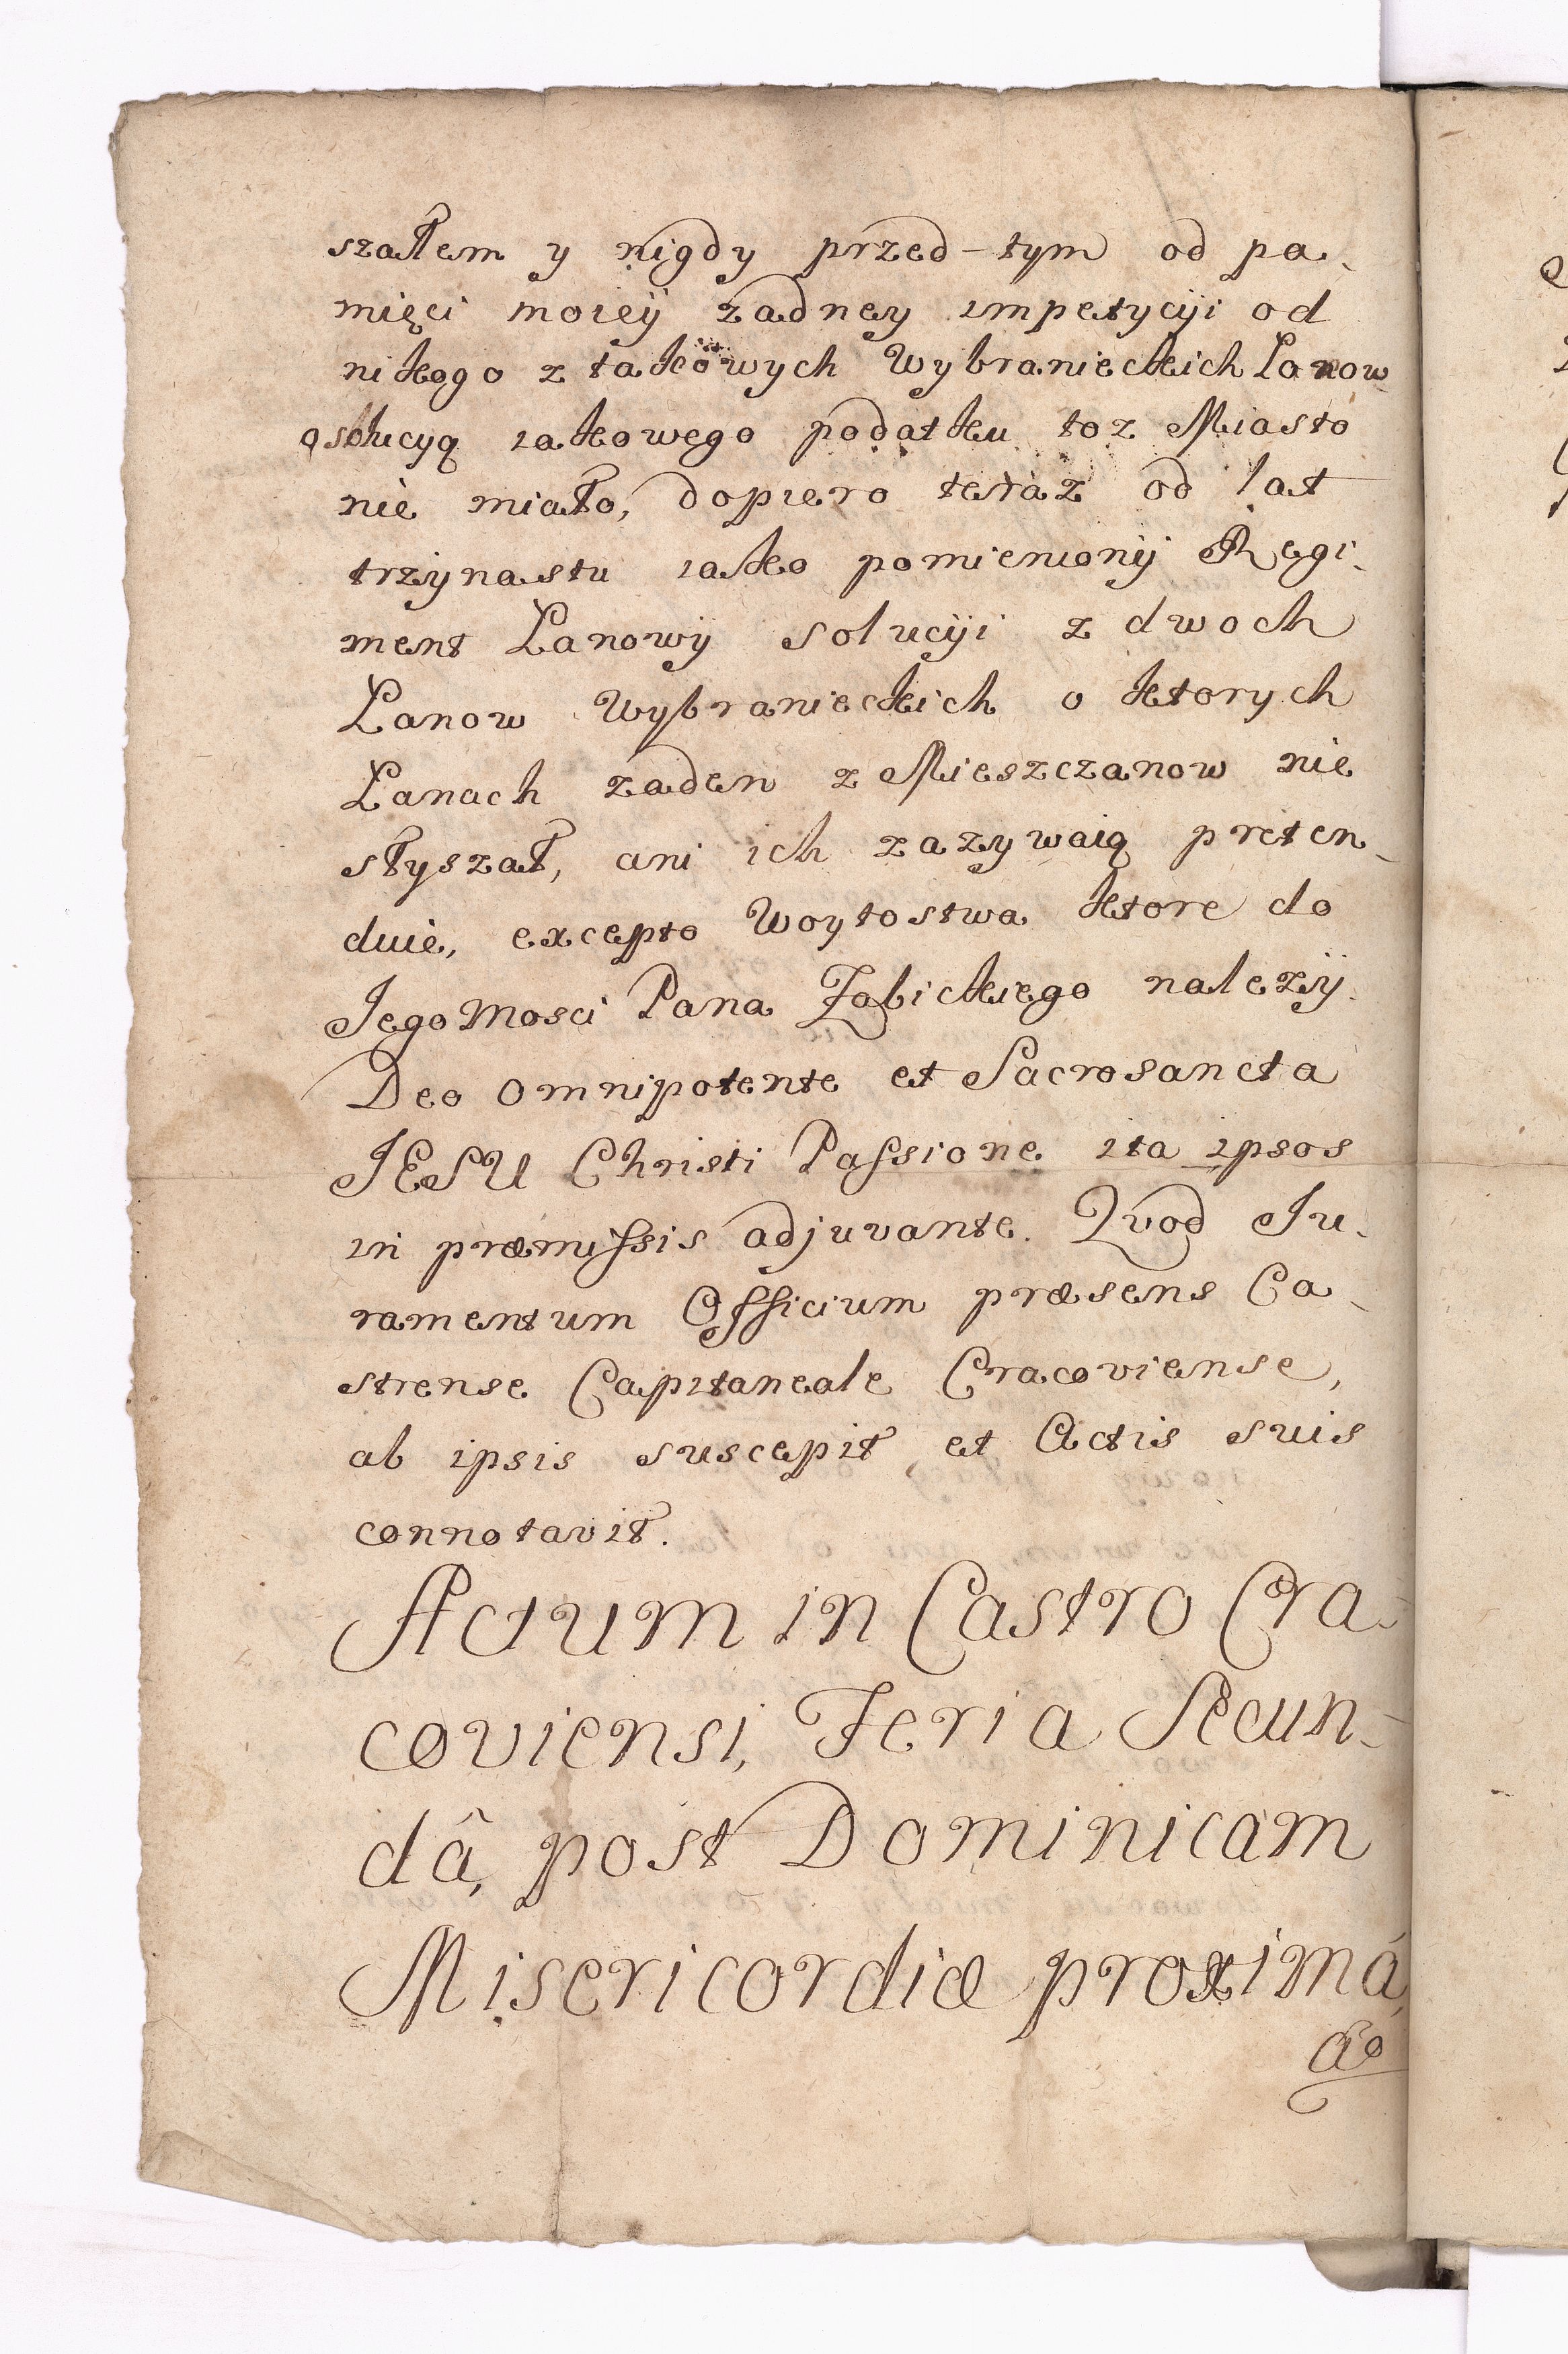 szałem y nigdy przed-tym od pa-
mięci moieÿ zadney impetycÿi od
nikogo z takowych Wybranieckich Lanow
o solucyą iakowego podatku toz Miasto
nie miało, dopiero teraz od lat
trzÿnastu iako pomienionÿ Regi-
ment Łanowÿ solucÿi z dwoch
Łanow Wybranieckich o ktorych
Łanach zaden z Mieszczanow nie
słyszał, ani ich zazywaią preten-
duie, excepto Woytostwa ktore do
Jego Mosci Pana Załbickiego nalezÿ.
Deo Omnipotente et Sacrosancta
JESU Christi Passione ita ipsos
in præmissis adjuvante. Qvod Ju-
ramentum Officium præsens Ca-
strense Capitaneale Cracoviense,
ab ipsis suscepit et Actis suis
connotavit.
Actum in Castro Cra-
coviensi, Feria Secun-
dâ, post Dominicam
Misericordiæ proximá
Aõ